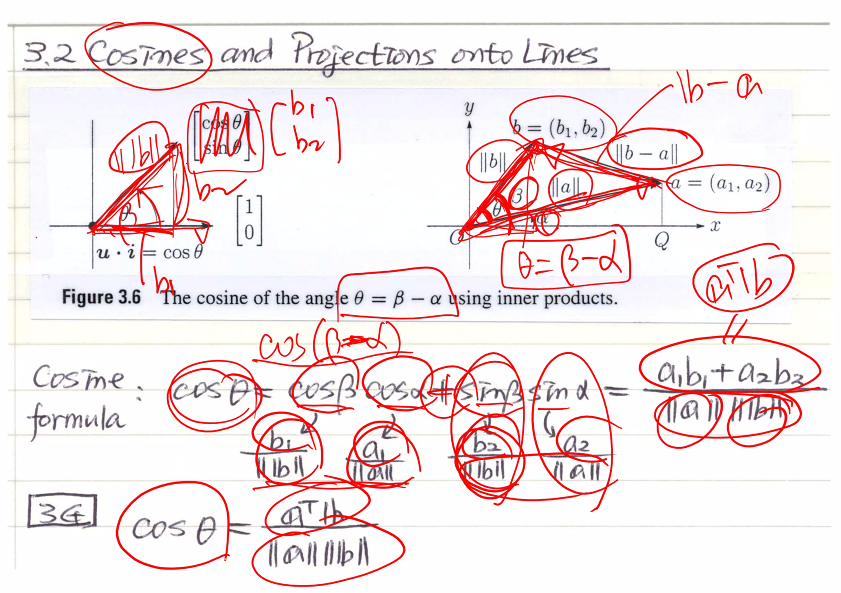 3.2 Cosines and Projections onto Lines
‖b‖
[cos θ sin θ]
[b₁ b₂]
b₂
θ
[1 0]
u · i = cos θ
b₁
b − a
y
b = (b₁, b₂)
‖b‖
‖b − a‖
β
‖a‖
a = (a₁, a₂)
θ
α
O
Q
x
θ = β − α
Figure 3.6 The cosine of the angle θ = β − α using inner products.
aᵀb
cos(β − α)
=
Cosine formula : cos θ = cos β cos α + sin β sin α = a₁b₁ + a₂b₂ / ‖a‖ ‖b‖
b₁/‖b‖ a₁/‖a‖ b₂/‖b‖ a₂/‖a‖
3G cos θ = aᵀb / ‖a‖‖b‖